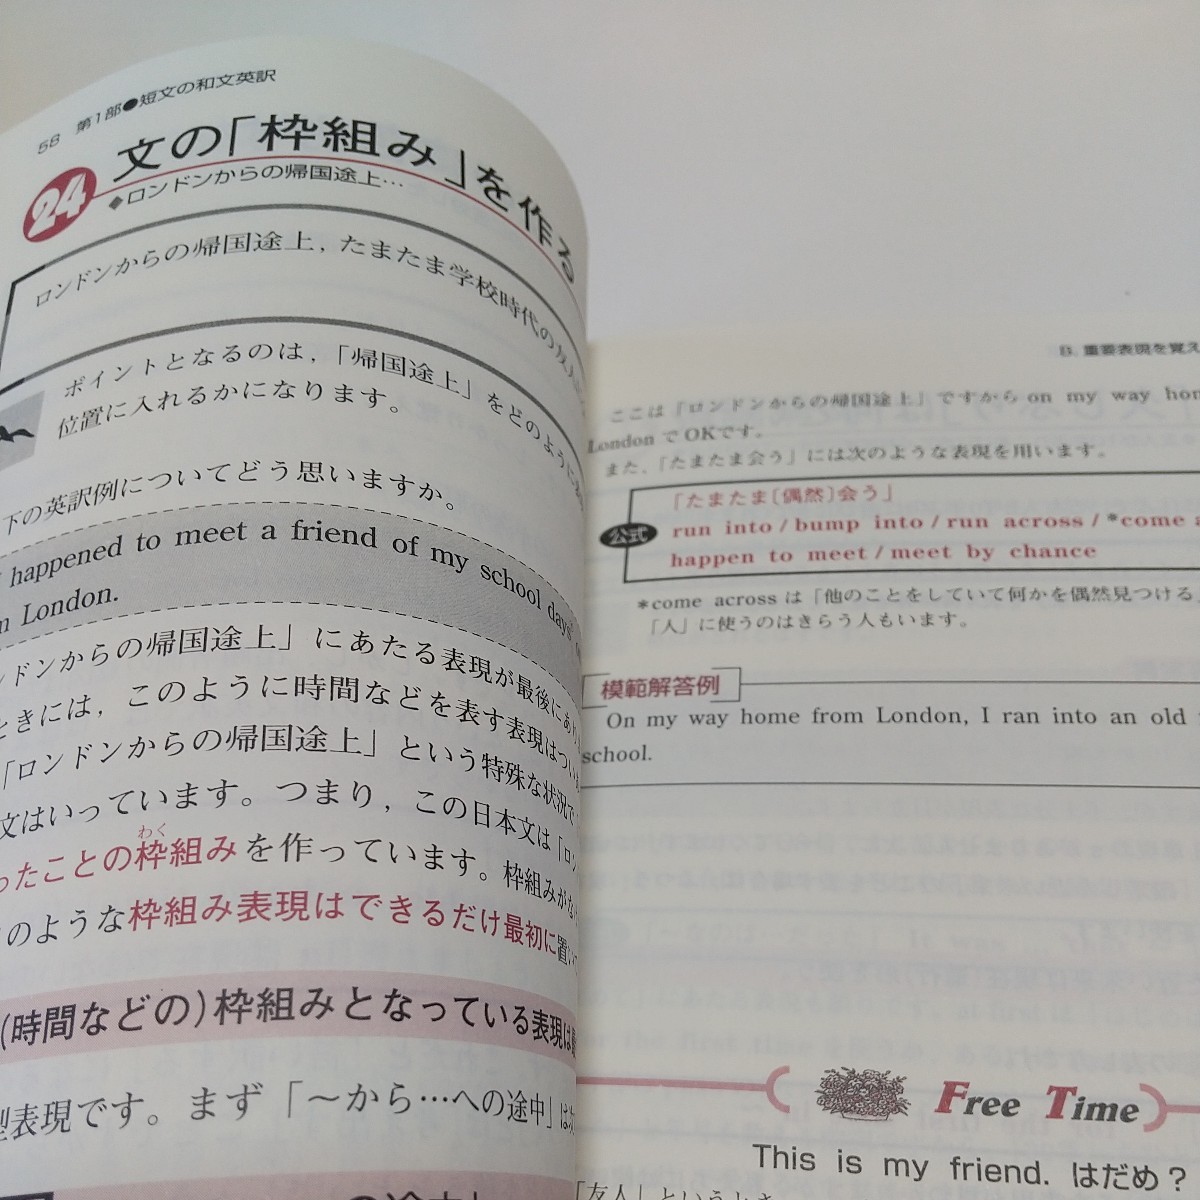 58 第1部●短文の和文英訳
24 文の「枠組み」を作る
◆ロンドンからの帰国途上…
ロンドンからの帰国途上，たまたま学校時代の友人
ポイントとなるのは，「帰国途上」をどのように
位置に入れるかになります。
下の英訳例についてどう思いますか。
happened to meet a friend of my school days
London.
ンドンからの帰国途上」にあたる表現が最後に
ときには，このように時間などを表す表現は
「ロンドンからの帰国途上」という特殊な状況で
文はいっています。つまり，この日本文は「ロン
わく
ったことの枠組みを作っています。枠組みが
のような枠組み表現はできるだけ最初に置い
(時間などの)枠組みとなっている表現は
型表現です。まず「～から…への途中」は
の途中」
B. 重要表現を覚え
ここは「ロンドンからの帰国途上」ですから on my way hom
London でOKです。
また，「たまたま会う」には次のような表現を用います。
公式
「たまたま〔偶然〕会う」
run into / bump into / run across / *come
happen to meet / meet by chance
*come across は「他のことをしていて何かを偶然見つける」
「人」に使うのはきらう人もいます。
模範解答例
On my way home from London, I ran into an old
school.
Free Time
This is my friend. はだめ？
「友人」というとき